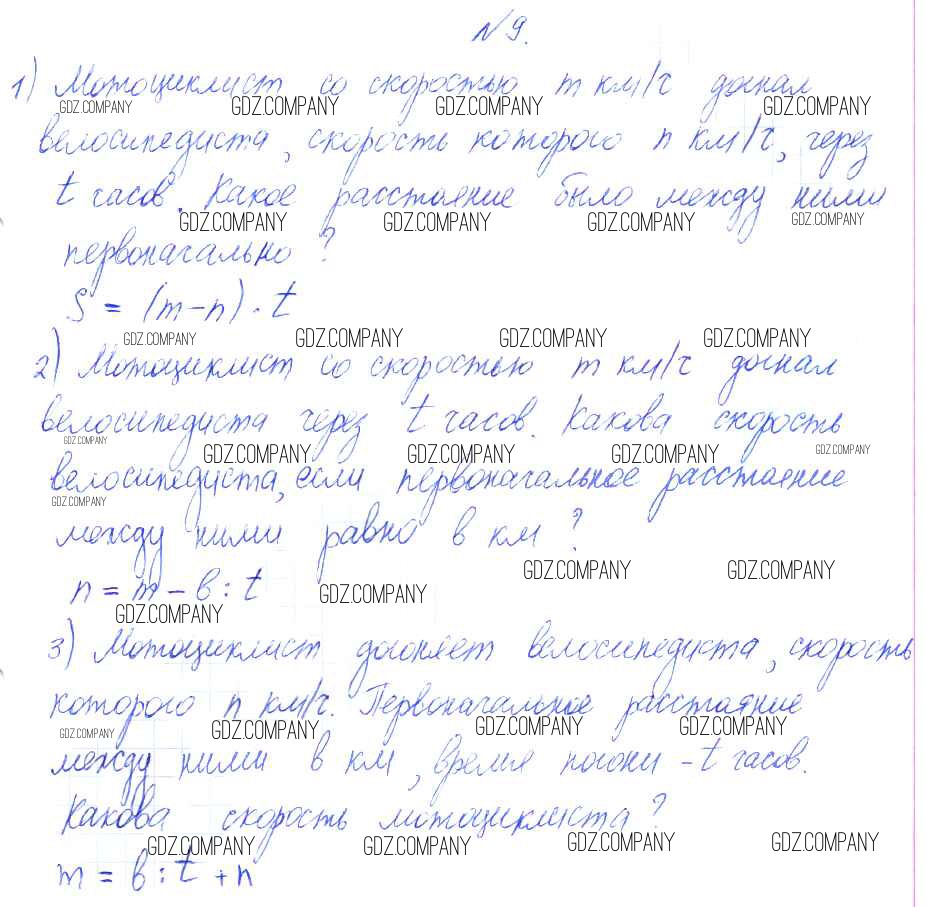 №9.
1) Мотоциклист со скоростью m км/ч догнал
GDZ.COMPANY GDZ.COMPANY GDZ.COMPANY GDZ.COMPANY
велосипедиста, скорость которого n км/ч, через
t часов. Какое расстояние было между ними
GDZ.COMPANY GDZ.COMPANY GDZ.COMPANY GDZ.COMPANY
первоначально?
S = (m-n)·t
GDZ.COMPANY GDZ.COMPANY GDZ.COMPANY GDZ.COMPANY
2) Мотоциклист со скоростью m км/ч догнал
велосипедиста через t часов. Какова скорость
GDZ.COMPANY GDZ.COMPANY GDZ.COMPANY GDZ.COMPANY GDZ.COMPANY
велосипедиста, если первоначальное расстояние
GDZ.COMPANY
между ними равно в км?
GDZ.COMPANY GDZ.COMPANY
n = m - в : t
GDZ.COMPANY GDZ.COMPANY
3) Мотоциклист догоняет велосипедиста, скорость
которого n км/ч. Первоначальное расстояние
GDZ.COMPANY GDZ.COMPANY GDZ.COMPANY GDZ.COMPANY
между ними в км, время погони - t часов.
Какова скорость мотоциклиста?
GDZ.COMPANY GDZ.COMPANY GDZ.COMPANY GDZ.COMPANY
m = в : t + n